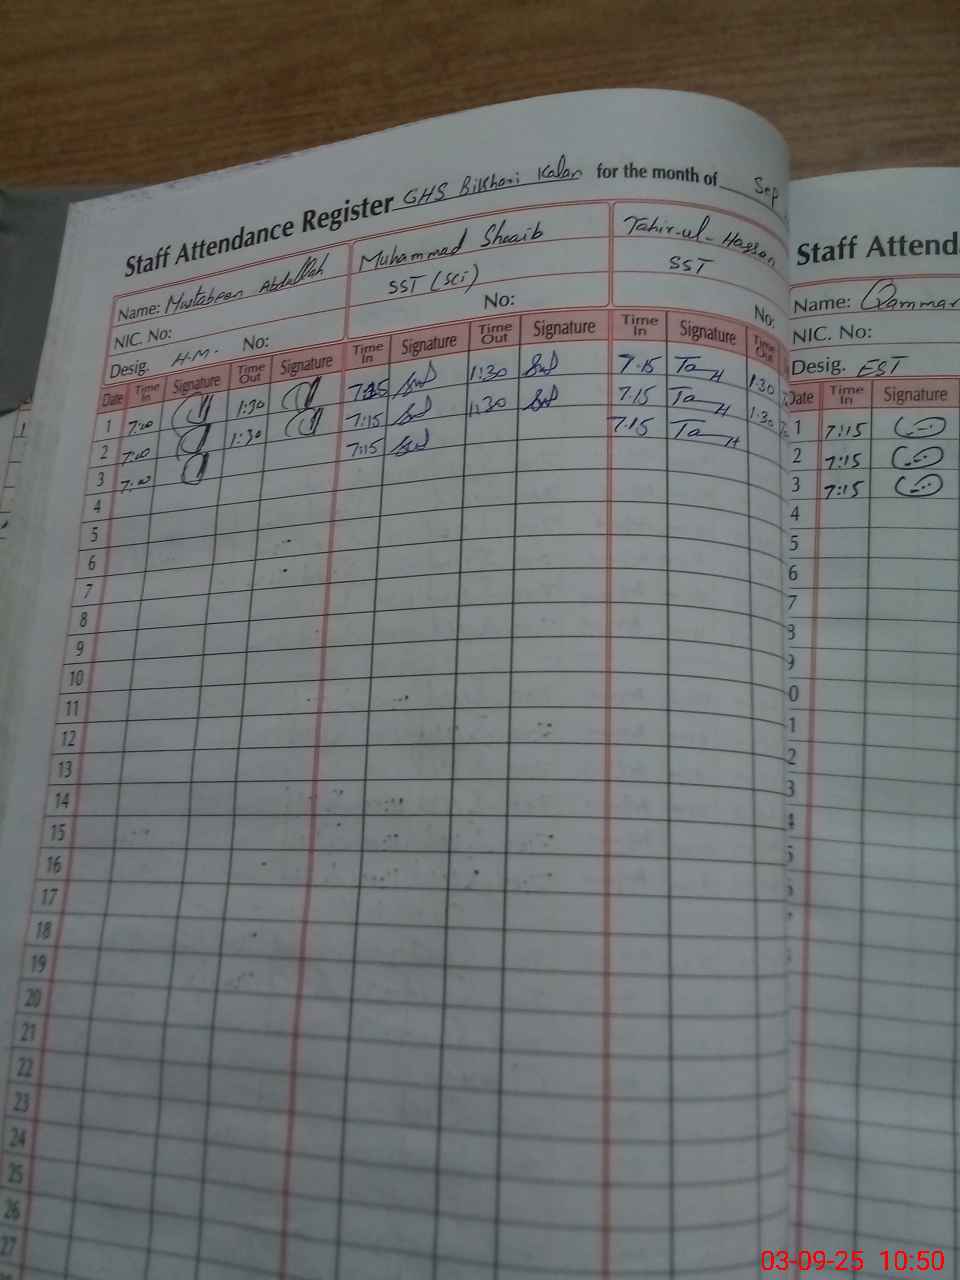 Staff Attendance Register GHS Bikhari Kalan for the month of Sep
Name: Mustabeen Abdullah Muhammad Shoaib Tahir-ul-Hassan
SST (Sci) SST
NIC. No:
Desig. H.M. No: No: No:
Date Time In Signature Time Out Signature Time In Signature Time Out Signature Time In Signature Time Out
1 7:00 1:30 7:15 1:30 7:15 TaH 1:30
2 7:00 1:30 7:15 1:30 7:15 TaH 1:30
3 7:00 7:15 7:15 TaH
4
5
6
7
8
9
10
11
12
13
14
15
16
17
18
19
20
21
22
23
24
25
26
27
Staff Attend
Name: Qammar
NIC. No:
Desig. EST
Date Time In Signature
1 7:15
2 7:15
3 7:15
4
5
6
7
8
9
0
1
2
3
4
5
03-09-25 10:50